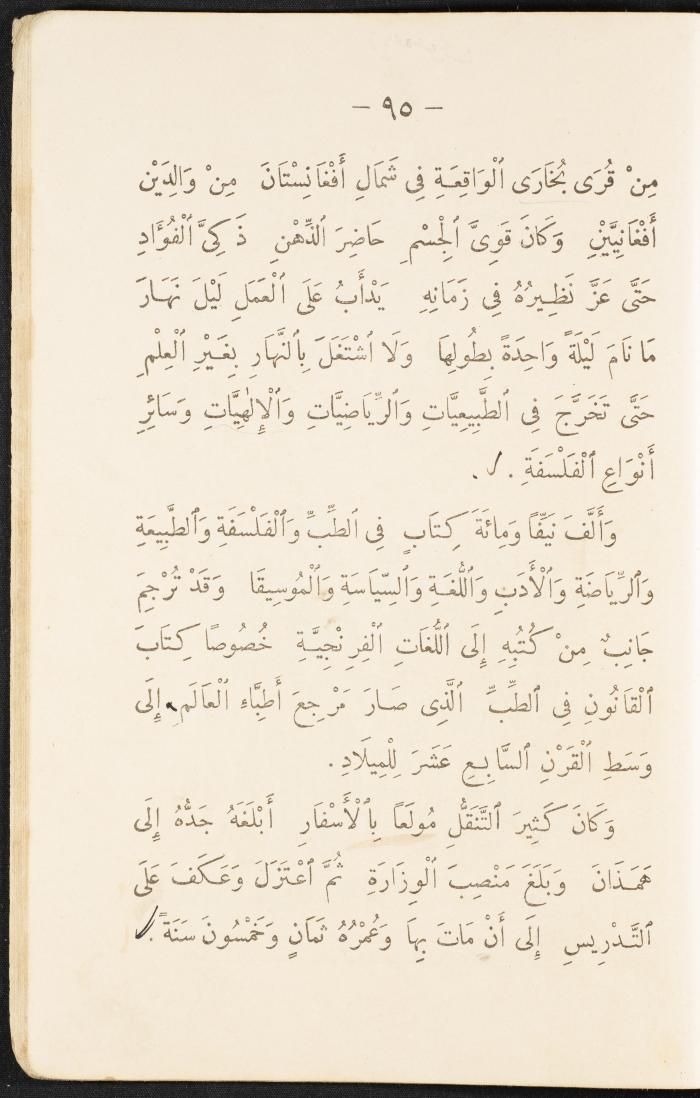 – ٩٥ –
مِنْ قُرَى بُخَارَى ٱلْوَاقِعَةِ فِي شَمَالِ أَفْغَانِسْتَانَ مِنْ وَالِدَيْنِ
أَفْغَانِيَّيْنِ وَكَانَ قَوِىَّ ٱلْجِسْمِ حَاضِرَ ٱلذِّهْنِ ذَكِىَّ ٱلْفُؤَادِ
حَتَّى عَزَّ نَظِيرُهُ فِي زَمَانِهِ يَدْأَبُ عَلَى ٱلْعَمَلِ لَيْلَ نَهَارَ
مَا نَامَ لَيْلَةً وَاحِدَةً بِطُولِهَا وَلَا ٱشْتَغَلَ بِٱلنَّهَارِ بِغَيْرِ ٱلْعِلْمِ
حَتَّى تَخَرَّجَ فِي ٱلطَّبِيعِيَّاتِ وَٱلرِّيَاضِيَّاتِ وَٱلْإِلٰهِيَّاتِ وَسَائِرِ
أَنْوَاعِ ٱلْفَلْسَفَةِ .
وَأَلَّفَ نَيِّفًا وَمِائَةَ كِتَابٍ فِي ٱلطِّبِّ وَٱلْفَلْسَفَةِ وَٱلطَّبِيعَةِ
وَٱلرِّيَاضَةِ وَٱلْأَدَبِ وَٱللُّغَةِ وَٱلسِّيَاسَةِ وَٱلْمُوسِيقَا وَقَدْ تُرْجِمَ
جَانِبٌ مِنْ كُتُبِهِ إِلَى ٱللُّغَاتِ ٱلْفِرِنْجِيَّةِ خُصُوصًا كِتَابَ
ٱلْقَانُونِ فِي ٱلطِّبِّ ٱلَّذِى صَارَ مَرْجِعَ أَطِبَّاءِ ٱلْعَالَمِ إِلَى
وَسَطِ ٱلْقَرْنِ ٱلسَّابِعِ عَشَرَ لِلْمِيلَادِ .
وَكَانَ كَثِيرَ ٱلتَّنَقُّلِ مُولَعًا بِٱلْأَسْفَارِ أَبْلَغَهُ جَدُّهُ إِلَى
هَمَذَانَ وَبَلَغَ مَنْصِبَ ٱلْوِزَارَةِ ثُمَّ ٱعْتَزَلَ وَعَكَفَ عَلَى
ٱلتَّدْرِيسِ إِلَى أَنْ مَاتَ بِهَا وَعُمْرُهُ ثَمَانٍ وَخَمْسُونَ سَنَةً .